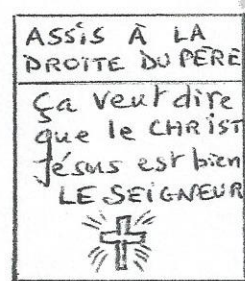 ASSiS À LA
DROITE DU PÈRE
Ça veut dire
que le CHRIST
Jésus est bien
LE SEIGNEUR